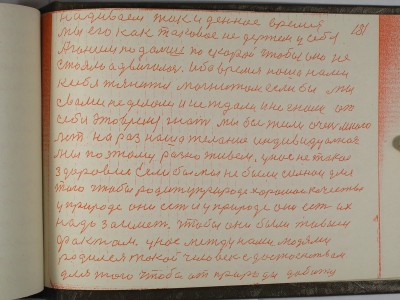 181
надиваем так и денное время
мы его как таковое не держем у себя
А гоним по домше по скорой чтобы оно не
стояло а двигалось. Иба время наша нами
к себя тянити магнитом если бы мы
сваими не делали и не ждали и не знали от
себя это время знать мы бы жили очень много
лет На раз наша желание индивидуальное
мы поэтому рачно живем, у нас не такая
здоровие Если бы мы не были силной для
того чтобы родит у природе хорошая качества
у природе они есть и у природе они есть их
надо заимет. чтобы они были жывым
фактом. у нас между нами людями
родился такой человек с достоенством
для того чтобы от природы давату